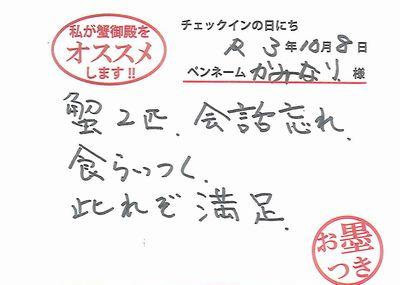 私が蟹御殿を
オススメ
します!!
チェックインの日にち
R3年10月8日
ペンネーム かみなり 様
蟹2匹、会話忘れ、
食らいつく、
此れぞ満足.
お墨
つき